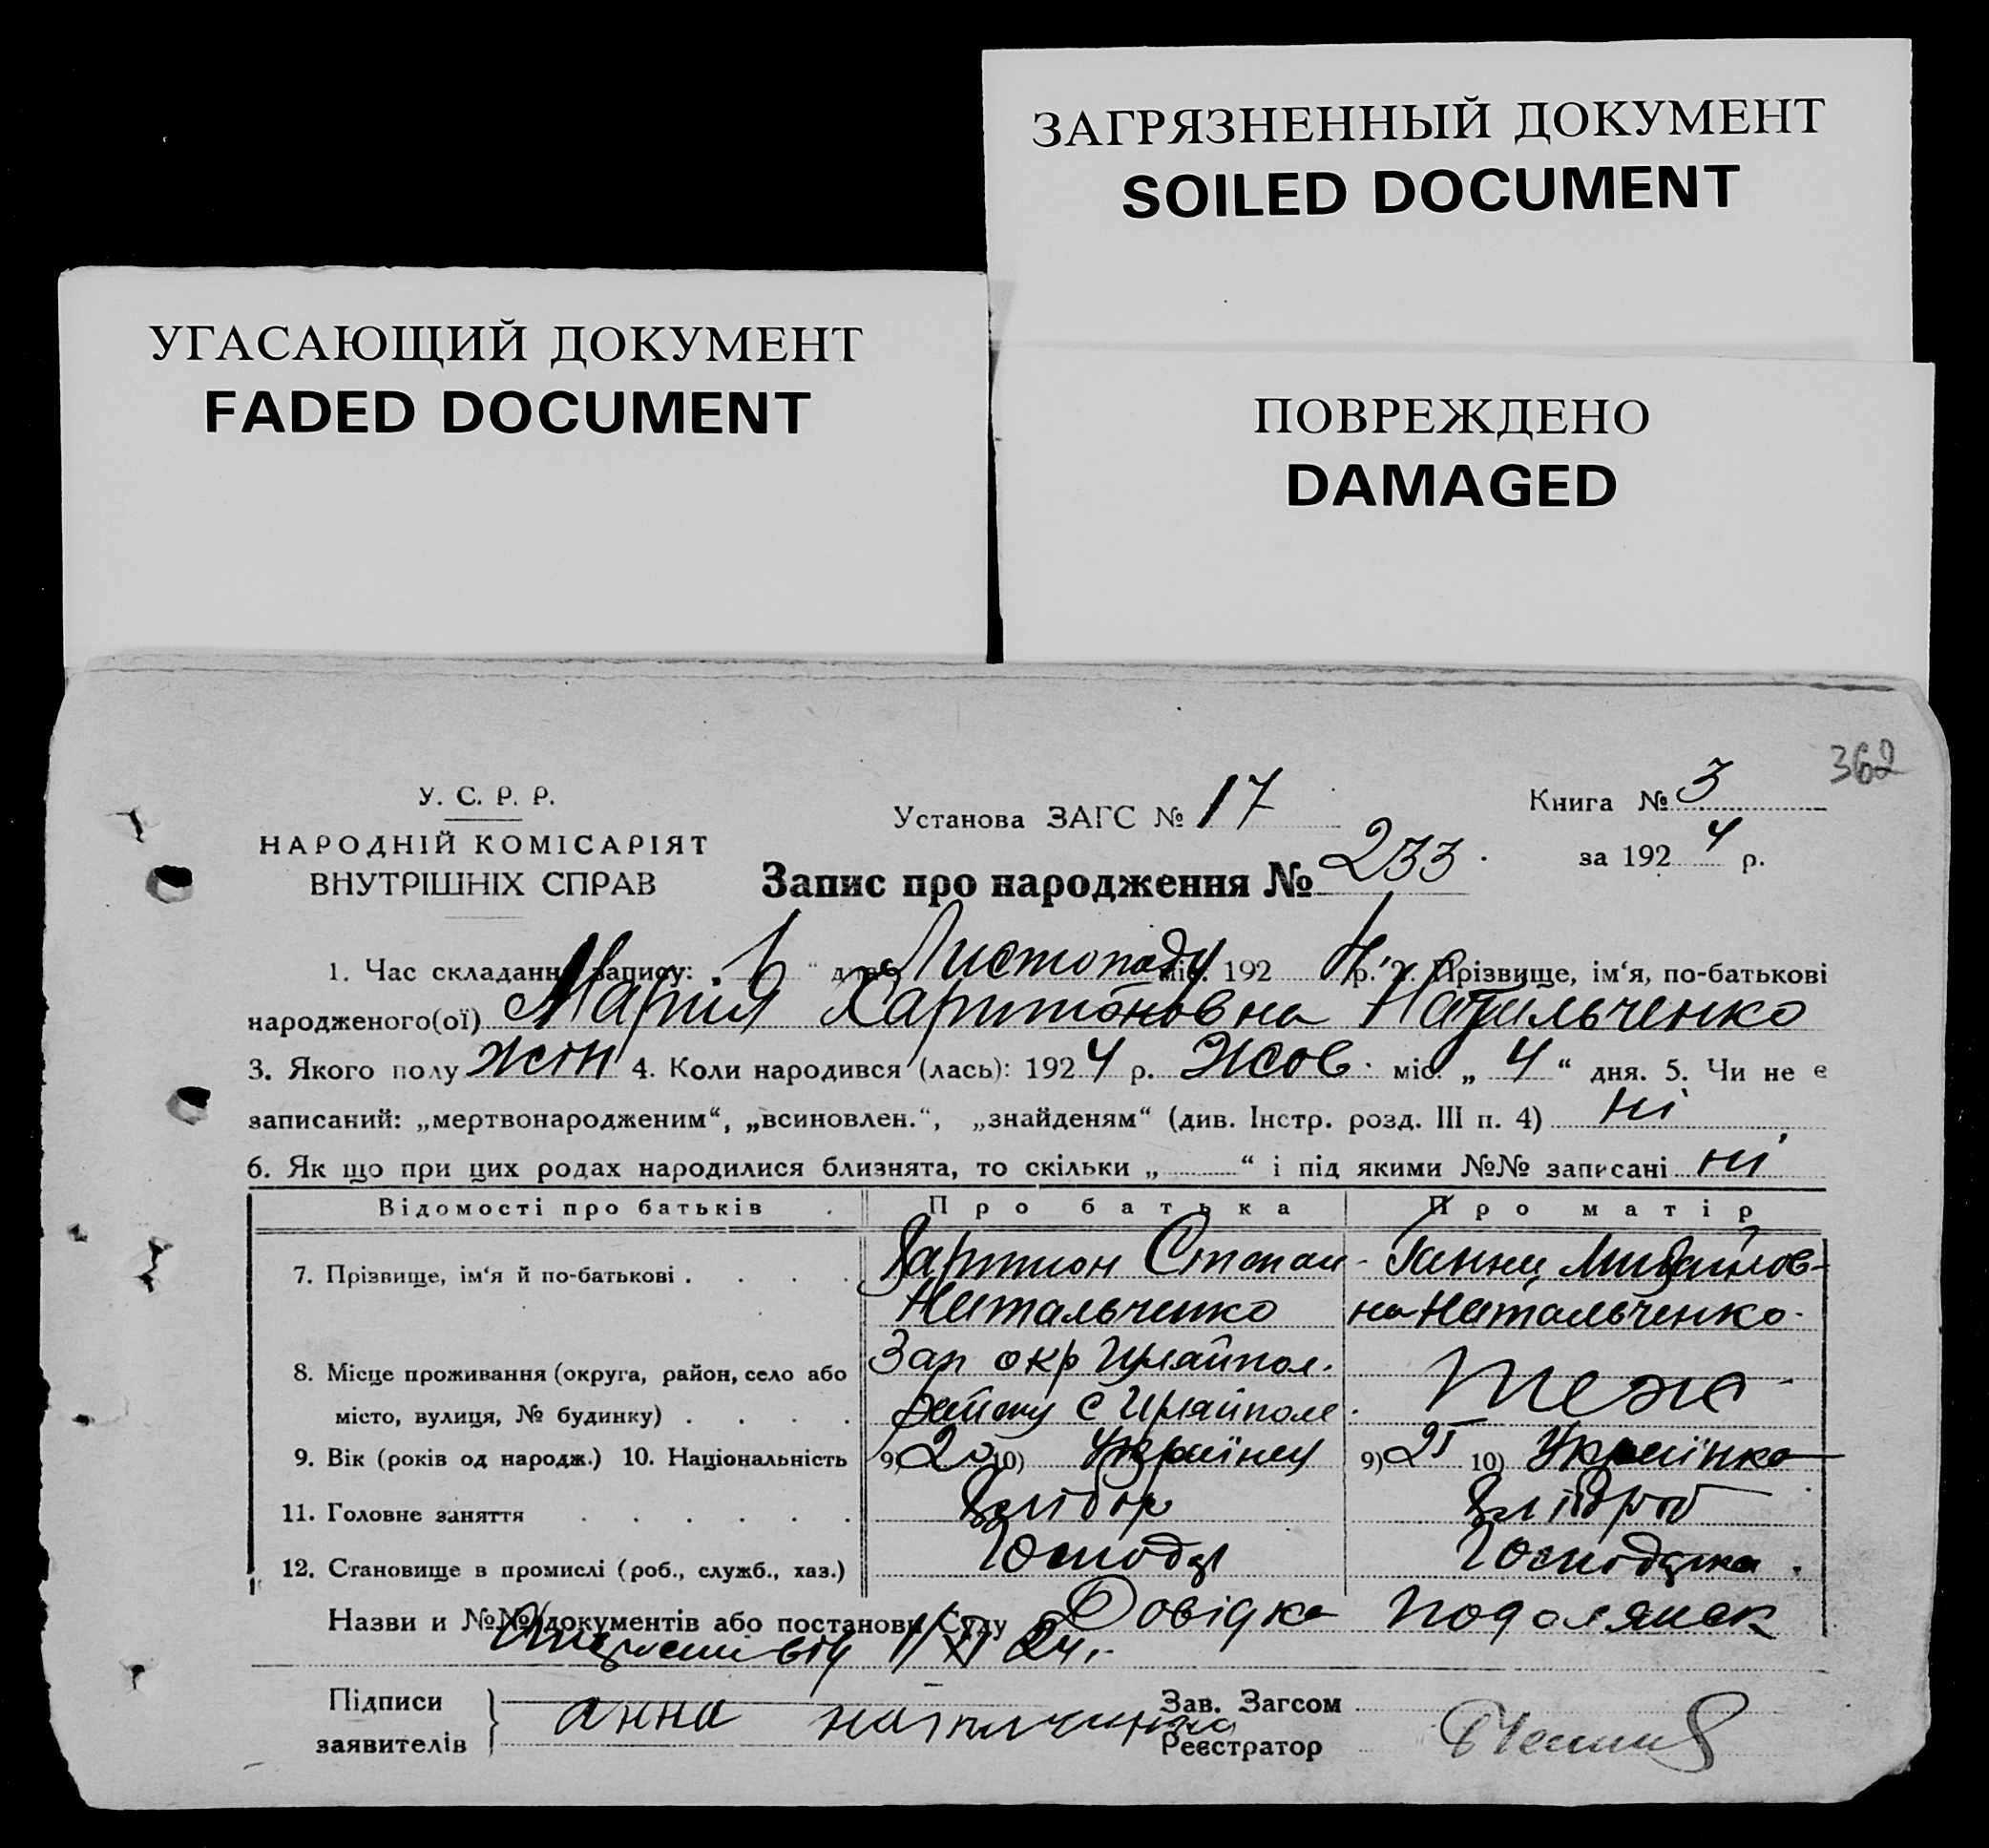 ЗАГРЯЗНЕННЫЙ ДОКУМЕНТ
SOILED DOCUMENT
УГАСАЮЩИЙ ДОКУМЕНТ
FADED DOCUMENT
ПОВРЕЖДЕНО
DAMAGED
362
У. С. Р. Р.
НАРОДНІЙ КОМІСАРІЯТ
ВНУТРІШНІХ СПРАВ
Установа ЗАГС № 17
Книга № 3
за 1924 р.
Запис про народження № 233.
1. Час складання запису: Листопаду міс. 1924 р. 2. Прізвище, ім‘я, по-батькові
народженого(ої) Марія Харитоновна Натальченко
3. Якого полу жін 4. Коли народився (лась): 1924 р. Жов. міс. „ 4 “ дня. 5. Чи не є
записаний: „мертвонародженим“, „всиновлен.“, „знайденям“ (див. Інстр. розд. III п. 4) ні
6. Як що при цих родах народилися близнята, то скільки „ “ і під якими №№ записані ні
Відомості про батьків Про батька Про матір
7. Прізвище, ім‘я й по-батькові . . . . Харитион Степан- Ганна Михайлов-
Натальченко на Натальченко.
8. Місце проживання (округа, район, село або Зап окр Гуляйпол. теж
місто, вулиця, № будинку) . . . . району с Гуляйполе.
9. Вік (років од народж.) 10. Національність 9) 20 10) Українец 9) 21 10) Українка
11. Головне заняття . . . . . . Хлібор Хлібороб
12. Становище в промислі (роб., служб., хаз.) Господ Господарка.
Назви и №№ документів або постанови Суду Довідка Подолянск
від 1/XI 24 г.
Підписи
заявителів } анна
Зав. Загсом
Реєстратор